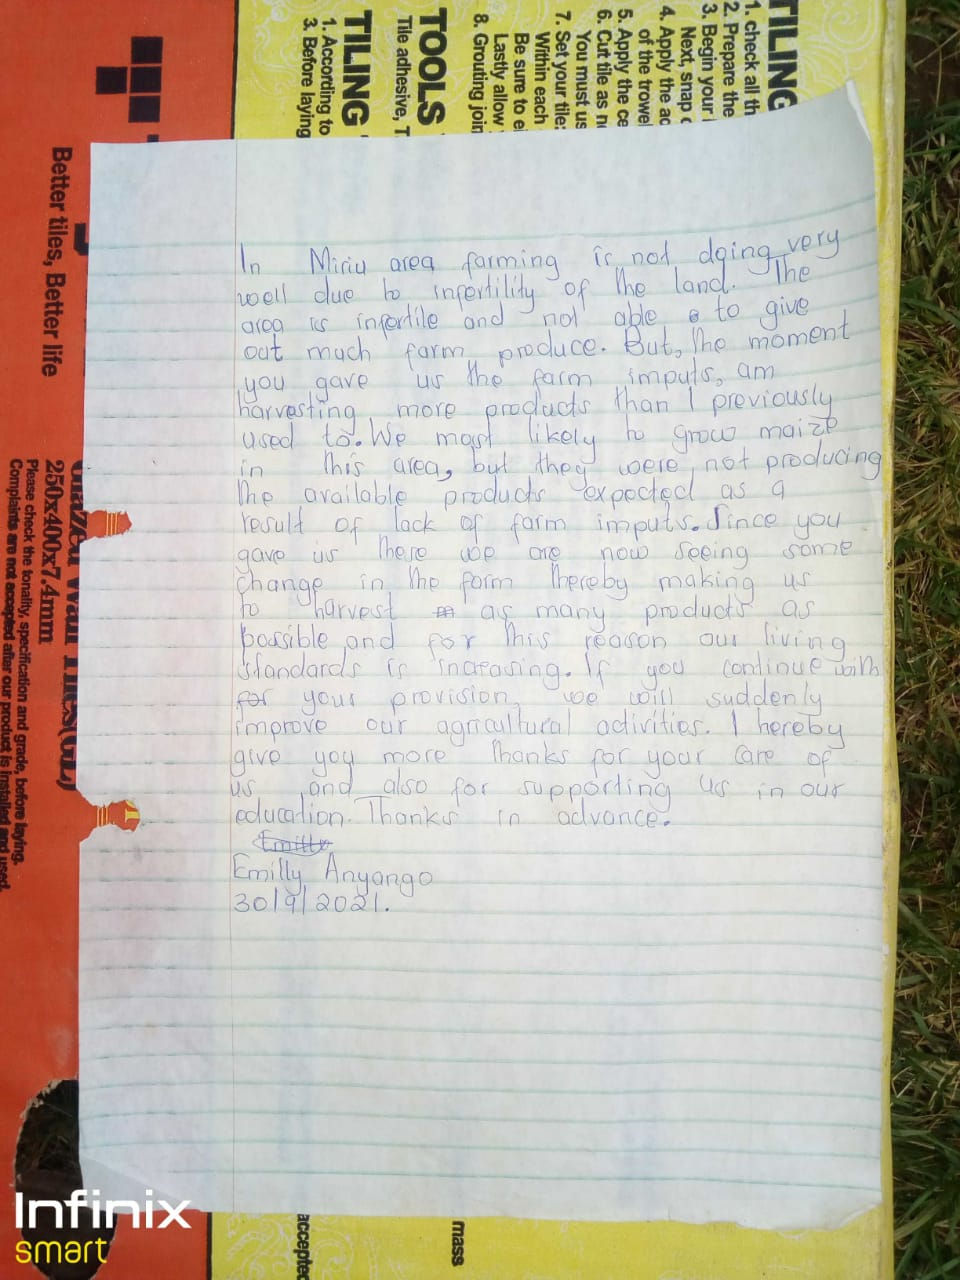 In Miriu area farming is not doing very
well due to infertility of the land. The
area is infertile and not able to give
out much farm produce. But, the moment
you gave us the farm imputs, am
harvesting more products than I previously
used to. We most likely to grow maize
in this area, but they were not producing
the available products expected as a
result of lack of farm imputs. Since you
gave us there we are now seeing some
change in the farm thereby making us
to harvest as many products as
possible and for this reason our living
standards is increasing. If you continue with
for your provision, we will suddenly
improve our agricultural activities. I hereby
give you more thanks for your care of
us and also for supporting us in our
education. Thanks in advance.
Emilly
Emilly Anyango
30/9/2021.
TILING
1. check all th
2. Prepare the
3. Begin your
Next, snap
4. Apply the ad
of the trowel
5. Apply the ce
6. Cut tile as n
You must us
7. Set your tile
Within each
Be sure to e
Lastly allow
8. Grouting join
TOOLS
Tile adhesive, T
TILING
1. According to
3. Before laying
Better tiles, Better life
Glazed Wall Tiles(GL)
250x400x7.4mm
Please check the tonality, specification and grade, before laying.
Complaints are not accepted after our product is installed and used.
accepted
mass
Infinix
smart